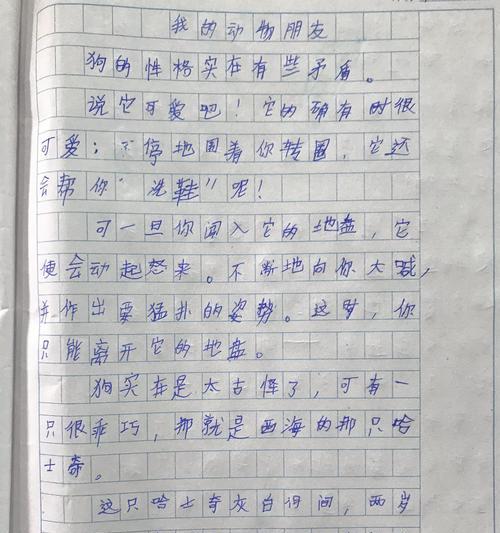 我的动物朋友
狗的性格实在有些矛盾。
说它可爱吧!它的确有时很
可爱:不停地围着你转圈,它还
会帮你“洗鞋”呢!
可一旦你闯入它的地盘,它
便会动起怒来。不断地向你大喊,
并作出要猛扑的姿势。这时,你
只能离开它的地盘。
狗实在是太古怪了,可有一
只很乖巧,那就是西海的那只哈
士奇。
这只哈士奇灰白相间,两岁